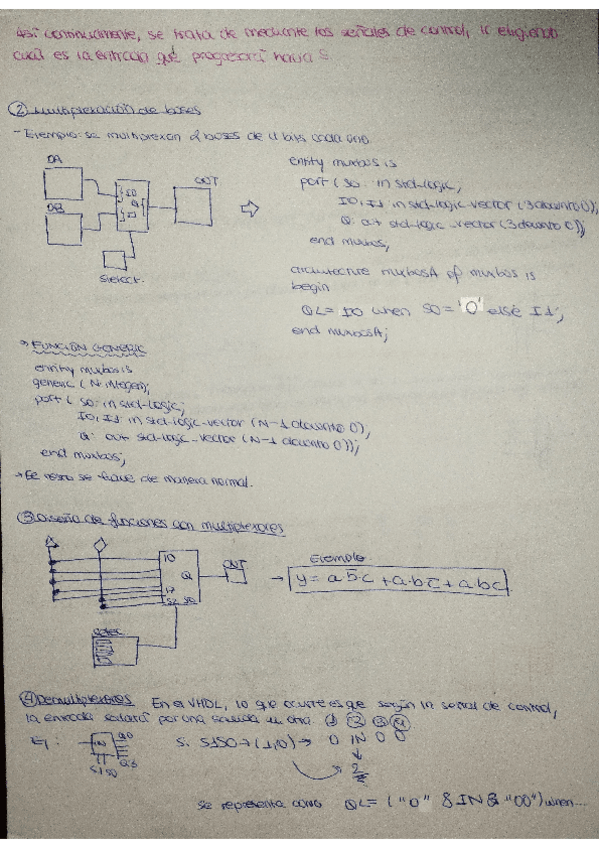 Así continuamente, se trata de mediante las señales de control, ir eligiendo
cuál es la entrada qué progresará hacia S.
② Multiplexación de buses
- Ejemplo: se multiplexan 2 buses de 4 bits cada uno.
DA
OUT
I0
Q
I1
DB
Select.
entity muxbus is
port ( S0: in std-logic;
I0, I1: in std-logic-vector (3 downto 0);
Q: out std-logic-vector (3 downto 0));
end muxbus;
architecture muxbusA of muxbus is
begin
Q<= I0 when S0 = '0' else I1;
end muxbusA;
→ FUNCIÓN GENERIC
entity muxbus is
generic (N: integer);
port ( S0: in std-logic;
I0, I1: in std-logic-vector (N-1 downto 0);
Q: out std-logic-vector (N-1 downto 0));
end muxbus;
→ El resto se hace de manera normal.
③ Diseño de funciones con multiplexores
I0
Q
I7
S2 S0
OUT
Selec
Ejemplo
→ y = a·b̅·c + a·b·c̅ + abc
④ Demultiplexores En el VHDL, lo que ocurre es que según la señal de control,
la entrada saldrá por una salida u otra. ① ② ③ ④
Ej:
IN
Q0
Q3
S1 S0
Si S1S0 → (1,0) → 0 IN 0 0
2
se representa como Q<= ("0" & IN & "00") when...